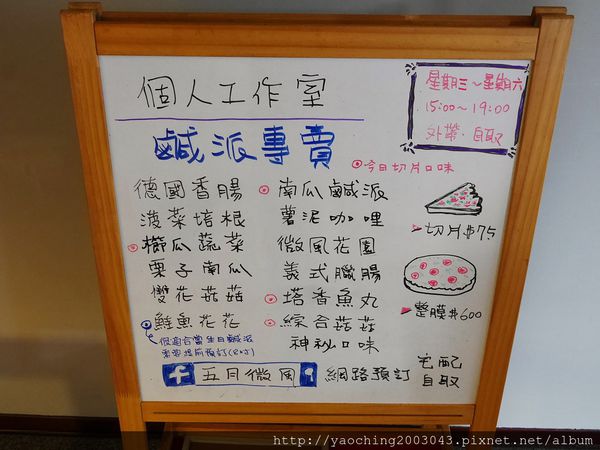 個人工作室
星期三～星期六
15:00～19:00
外帶．自取
鹹派專賣
今日切片口味
德國香腸
菠菜培根
櫛瓜蔬菜
栗子南瓜
雙花菇菇
鮭魚花花
僅適合當生日鹹派
南瓜鹹派
薯泥咖哩
微風花園
義式臘腸
塔香魚丸
綜合菇菇
神秘口味
切片$75
整模$600
f 五月微風
網路預訂
宅配
自取
http://yaoching2003043.pixnet.net/album